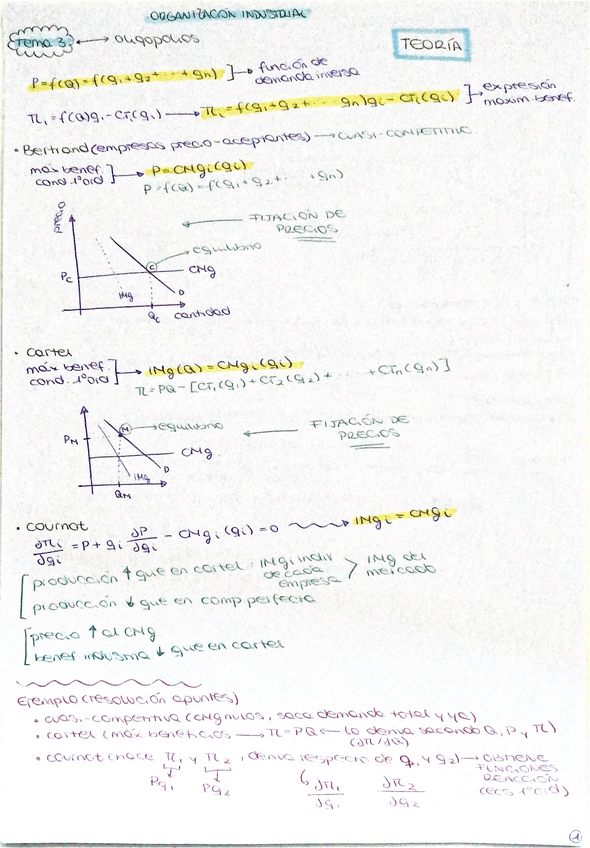 ORGANIZACIÓN INDUSTRIAL
Tema 3 → oligopolios
TEORÍA
P=f(Q)=f(q1+q2+ ··· +qn) ] → función de demanda inversa
πi=f(Q)qi-CTi(qi) → πi=f(q1+q2+ ··· qn)qi-CTi(qi) ] → expresión maxim benef.
• Bertrand (empresas precio-aceptantes) → CUASI-COMPETITIVO
máx benef. cond. 1ºord ] → P=CMgi(qi)
P=f(Q)=f(q1+q2+ ··· +qn)
precio
← FIJACIÓN DE PRECIOS
equilibrio
C
Pc
CMg
IMg
D
Qc
cantidad
• Cartel
máx benef. cond. 1ºord ] → IMg(Q)=CMgi(qi)
π=PQ-[CT1(q1)+CT2(q2)+ ····· +CTn(qn)]
M → equilibrio
← FIJACIÓN DE PRECIOS
PM
CMg
D
IMg
QM
• Cournot
∂πi/∂qi = P+qi ∂P/∂qi - CMgi(qi)=0 → IMgi=CMgi
producción ↑ que en cartel: IMgi indiv de cada empresa > IMg del mercado
producción ↓ que en comp perfecta
precio ↑ al CMg
benef industria ↓ que en cartel
Ejemplo (resolución apuntes)
• cuasi-competitiva (CMg nulos, saca demanda total y ya)
• cartel (máx beneficios → π=PQ ← lo deriva según Q, P y π)
(∂π/∂Q)
• cournot (hace π1 y π2, deriva respecto de q1 y q2) → OBTIENE FUNCIONES REACCIÓN (ecs 1ºord)
Pq1 Pq2
∂π1/∂q1 ∂π2/∂q2
1